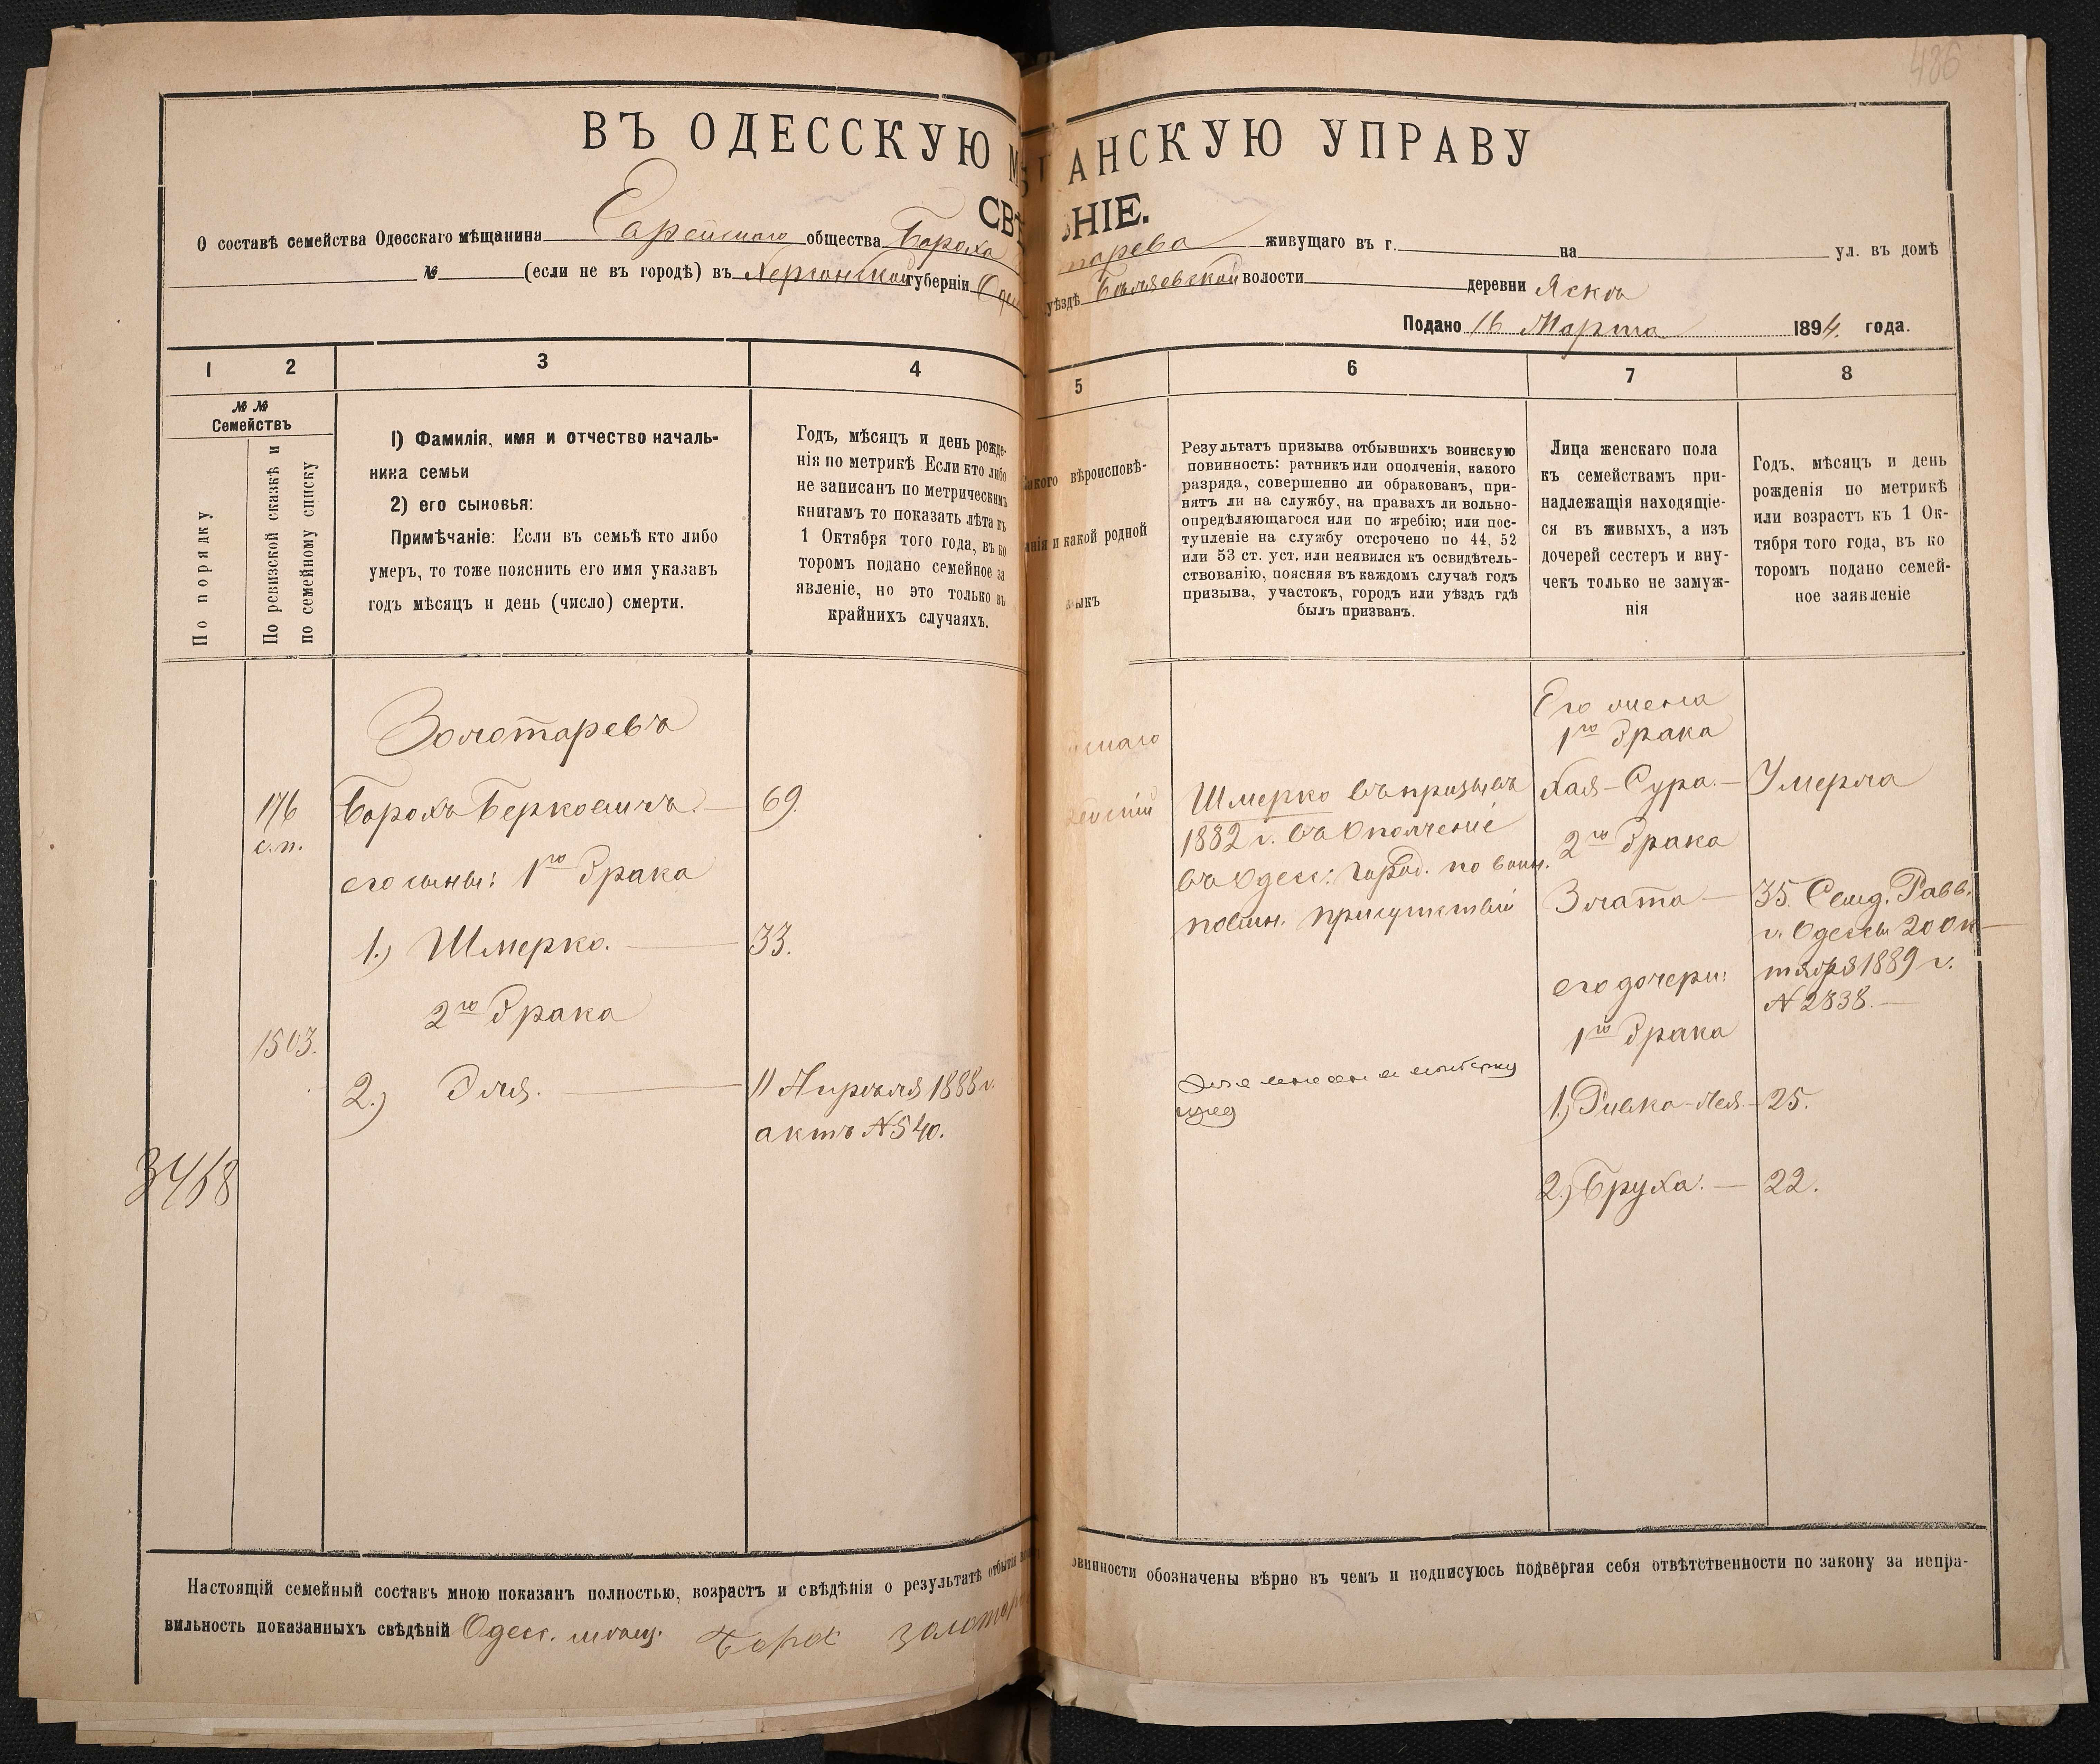 486
ВЪ ОДЕССКУЮ М АНСКУЮ УПРАВУ
СВѢ НІЕ.
О составѣ семейства Одесскаго мѣщанина Еврейскаго общества Бороха тарева живущаго въ г. на ул. въ домѣ
№ (если не въ городѣ) въ Херсонской губерніи Оде уѣздѣ Беляевской волости деревни Яски
Подано 16 Марта 1894. года.
1 2 3 4 5 6 7 8
№ №
Семействъ
По порядку
По ревизской сказкѣ и
по семейному списку
1) Фамилія, имя и отчество началь-
ника семьи
2) его сыновья:
Примѣчаніе: Если въ семьѣ кто либо
умеръ, то тоже пояснить его имя указавъ
годъ мѣсяцъ и день (число) смерти.
Годъ, мѣсяцъ и день рожде-
нія по метрикѣ Если кто либо
не записанъ по метрическимъ
книгамъ то показать лѣта къ
1 Октября того года, въ ко
торомъ подано семейное за
явленіе, но это только въ
крайнихъ случаяхъ.
акого вѣроисповѣ-
анія и какой родной
зыкъ
Результатъ призыва отбывшихъ воинскую
повинность: ратникъ или ополченія, какого
разряда, совершенно ли обракованъ, при-
нятъ ли на службу, на правахъ ли вольно-
опредѣляющагося или по жребію; или пос-
тупленіе на службу отсрочено по 44, 52
или 53 ст. уст. или неявился къ освидѣтель-
ствованію, поясняя въ каждомъ случаѣ годъ
призыва, участокъ, городъ или уѣздъ гдѣ
былъ призванъ.
Лица женскаго пола
къ семействамъ при-
надлежащія находящіе-
ся въ живыхъ, а изъ
дочерей сестеръ и вну-
чекъ только не замуж-
нія
Годъ, мѣсяцъ и день
рожденія по метрикѣ
или возрастъ къ 1 Ок-
тября того года, въ ко
торомъ подано семей-
ное заявленіе
Золотаревъ
176
с.п.
Борохъ Берковичъ. — 69.
его сыны: 1го брака
1.) Шмерко. — 33.
2го брака
1503.
2.) Эля. — 11 Апрѣля 1888 г.
актъ №540.
3458
Шмерко въ призывъ
1882 г. въ Ополченіе
въ Одесс: Город. по воин.
повин. присутствіи
Его жена
1го брака
Хая-Сура. — Умерла
2го брака
Злата — 35. Свид. Равв.
г. Одессы 20 Ок-
тября 1889 г.
№2838. —
его дочери:
1го брака
1.) Ривка-Лея. — 25.
2.) Бруха. — 22.
Настоящій семейный составъ мною показанъ полностью, возрастъ и свѣдѣнія о результатѣ отбытія овинности обозначены вѣрно въ чемъ и подписуюсь подвергая себя отвѣтственности по закону за непра-
вильность показанныхъ свѣдѣній Одесс. мѣщ. Борох Золотар